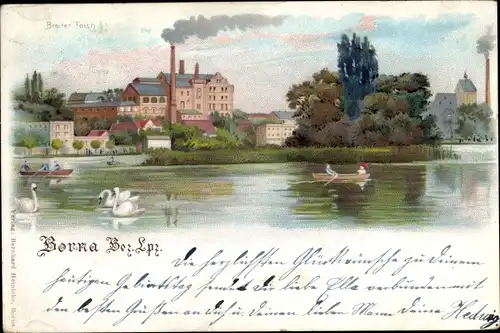 Breiter Teich
Borna Bez. Lpz.
Die herzlichsten Glückwünsche zu Deinem
heutigen Geburtstag sendet die liebe Ella verbunden mit
den besten Grüßen an Dich u Deinen lieben Mann Deine Hedwig
Verlag Bernhard